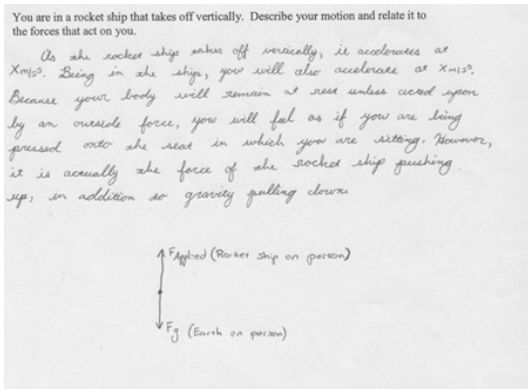 You are in a rocket ship that takes off vertically. Describe your motion and relate it to
the forces that act on you.
As the rocket ship takes off vertically, it accelerates at
X m/s². Being in the ship, you will also accelerate at X m/s².
Because your body will remain at rest unless acted upon
by an outside force, you will feel as if you are being
pressed onto the seat in which you are sitting. However,
it is actually the force of the rocket ship pushing
up, in addition to gravity pulling down.
F Applied (Rocket Ship on person)
Fg (Earth on person)